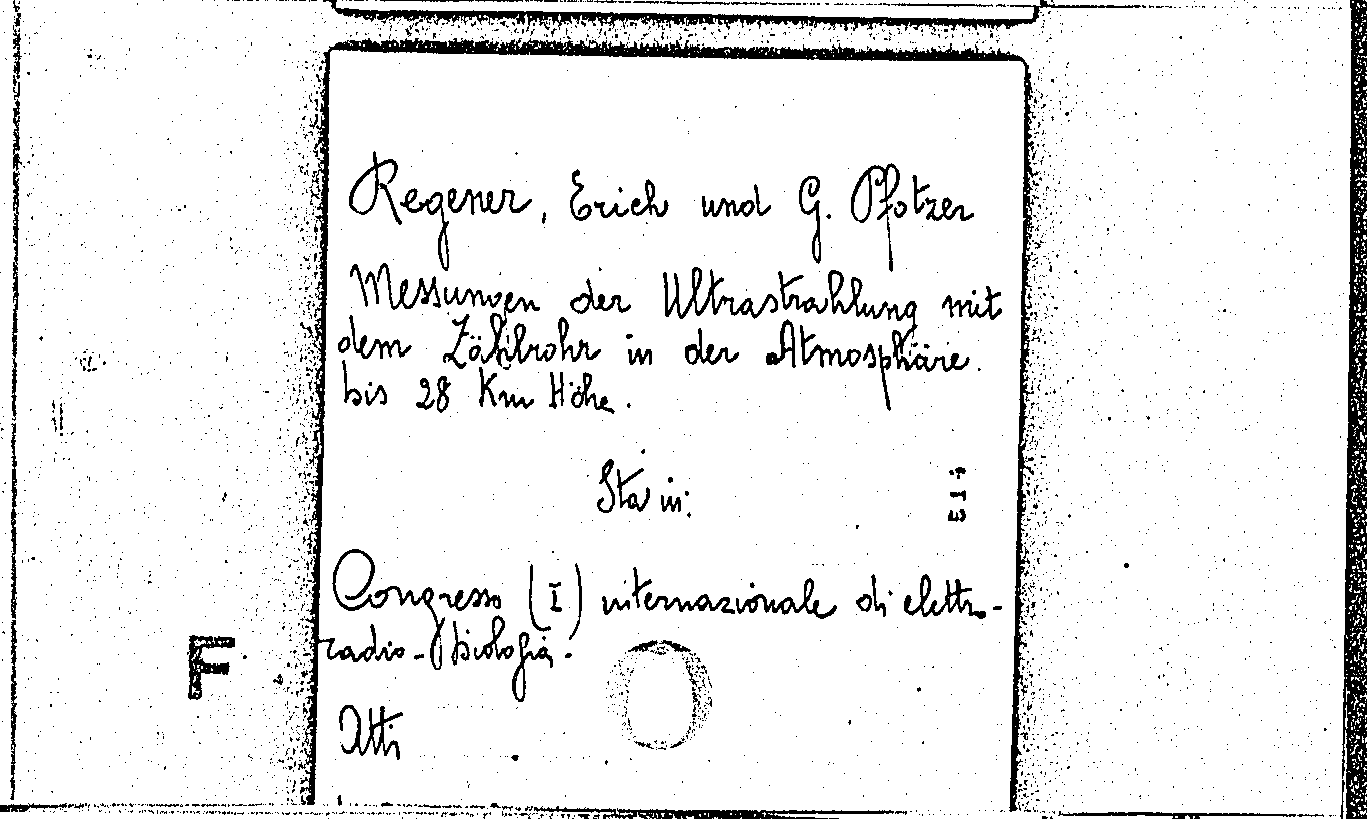 Regener, Erich und G. Pfotzer
Messungen der Ultrastrahlung mit
dem Zählrohr in der Atmosphäre.
bis 28 Km Höhe.
Sta in:
Congresso (I) internazionale di elettro-
radio-biologia.
Atti
F